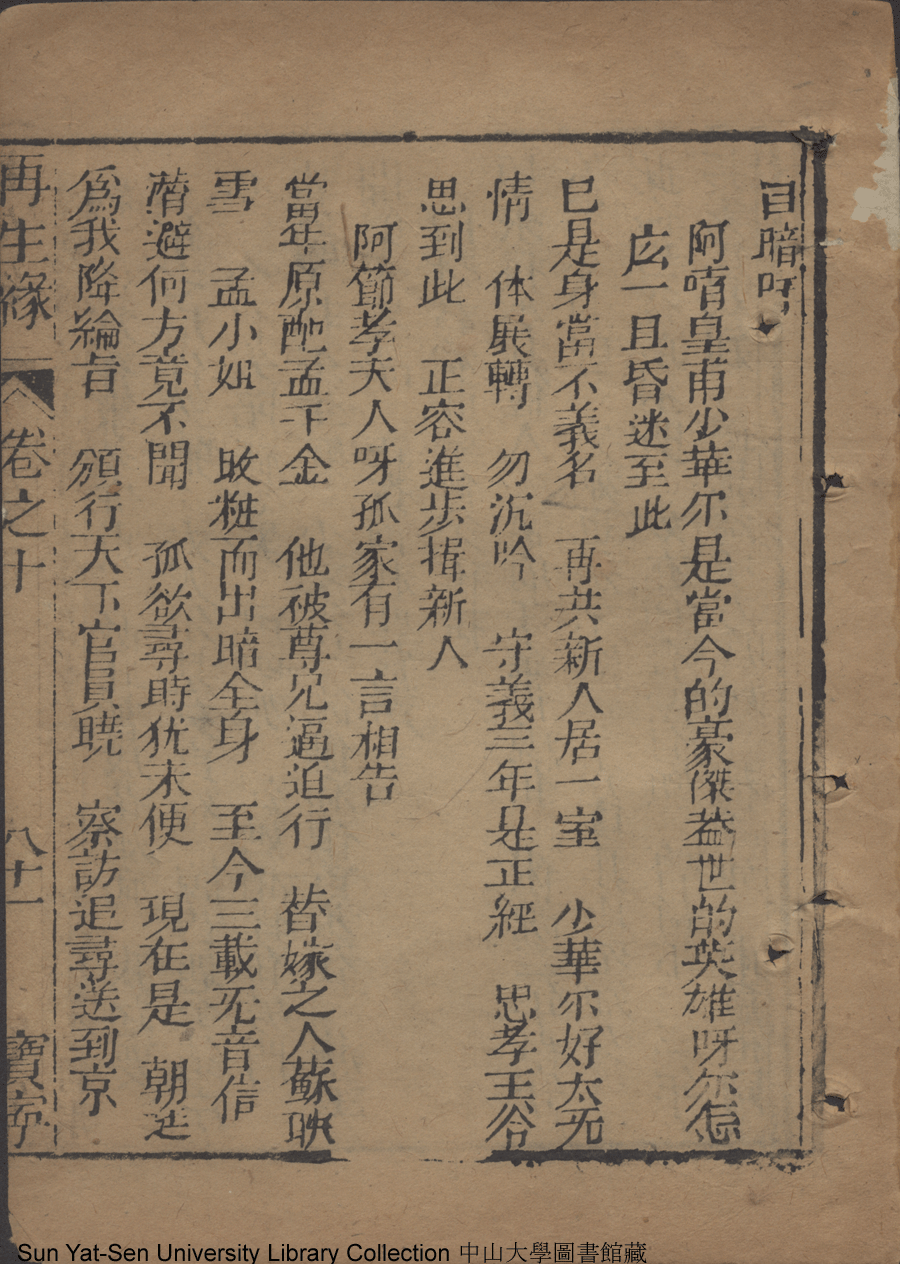 自暗呀
阿唷皇甫少華尔是當今的豪傑蓋世的英雄呀尔怎
広一旦昏迷至此
已是身當不義名　再共新人居一室　少華尔好太无
情　体展轉　勿沉吟　守義三年是正經　忠孝王爺
思到此　正容進步揖新人
阿節孝夫人呀孤家有一言相告
當年原配孟千金　他被尊兄逼迫行　替嫁之人蘇映
雪　孟小姐　改粧而出暗全身　至今三載无音信
潛避何方竟不聞　孤欲尋時犹未便　現在是　朝廷
爲我降綸旨　頒行天下官員曉　察訪追尋送到京
再生緣　卷之十　八十一　寶寧
Sun Yat-Sen University Library Collection 中山大學圖書館藏